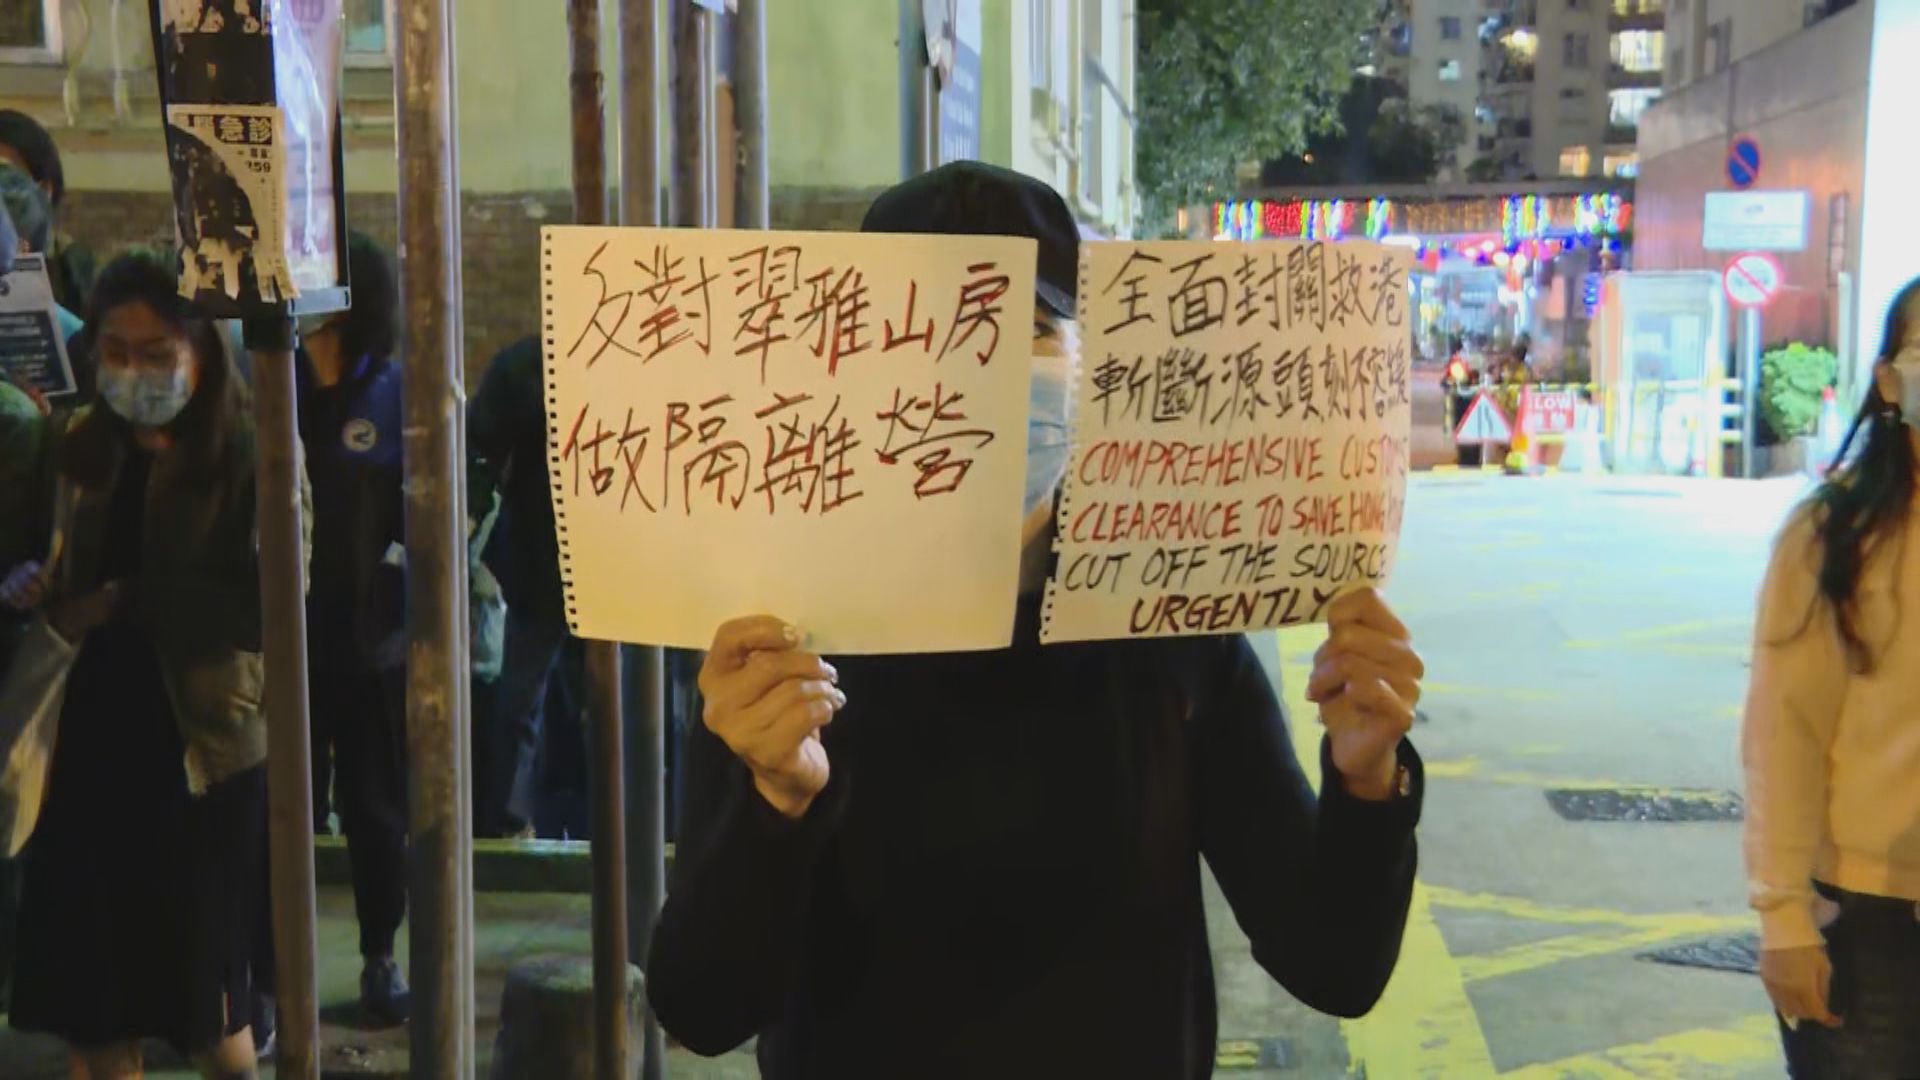 急診
反對翠雅山房
做隔離營
全面封關救港
斬斷源頭刻不容緩
COMPREHENSIVE CUSTOMS
CLEARANCE TO SAVE HONG
CUT OFF THE SOURCE
URGENTLY
LOW